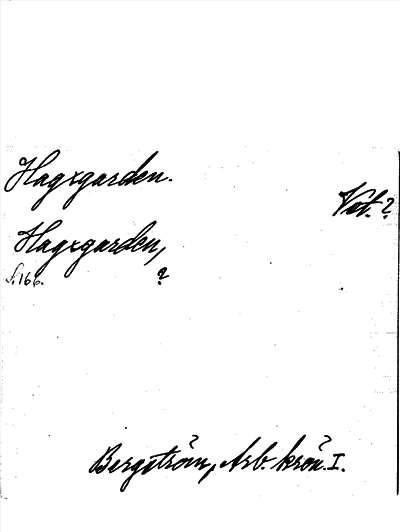 Hagxgarden.
Vet. ?
Hagxgarden,
?
S. 166.
Bergström, Arb. krön. I.